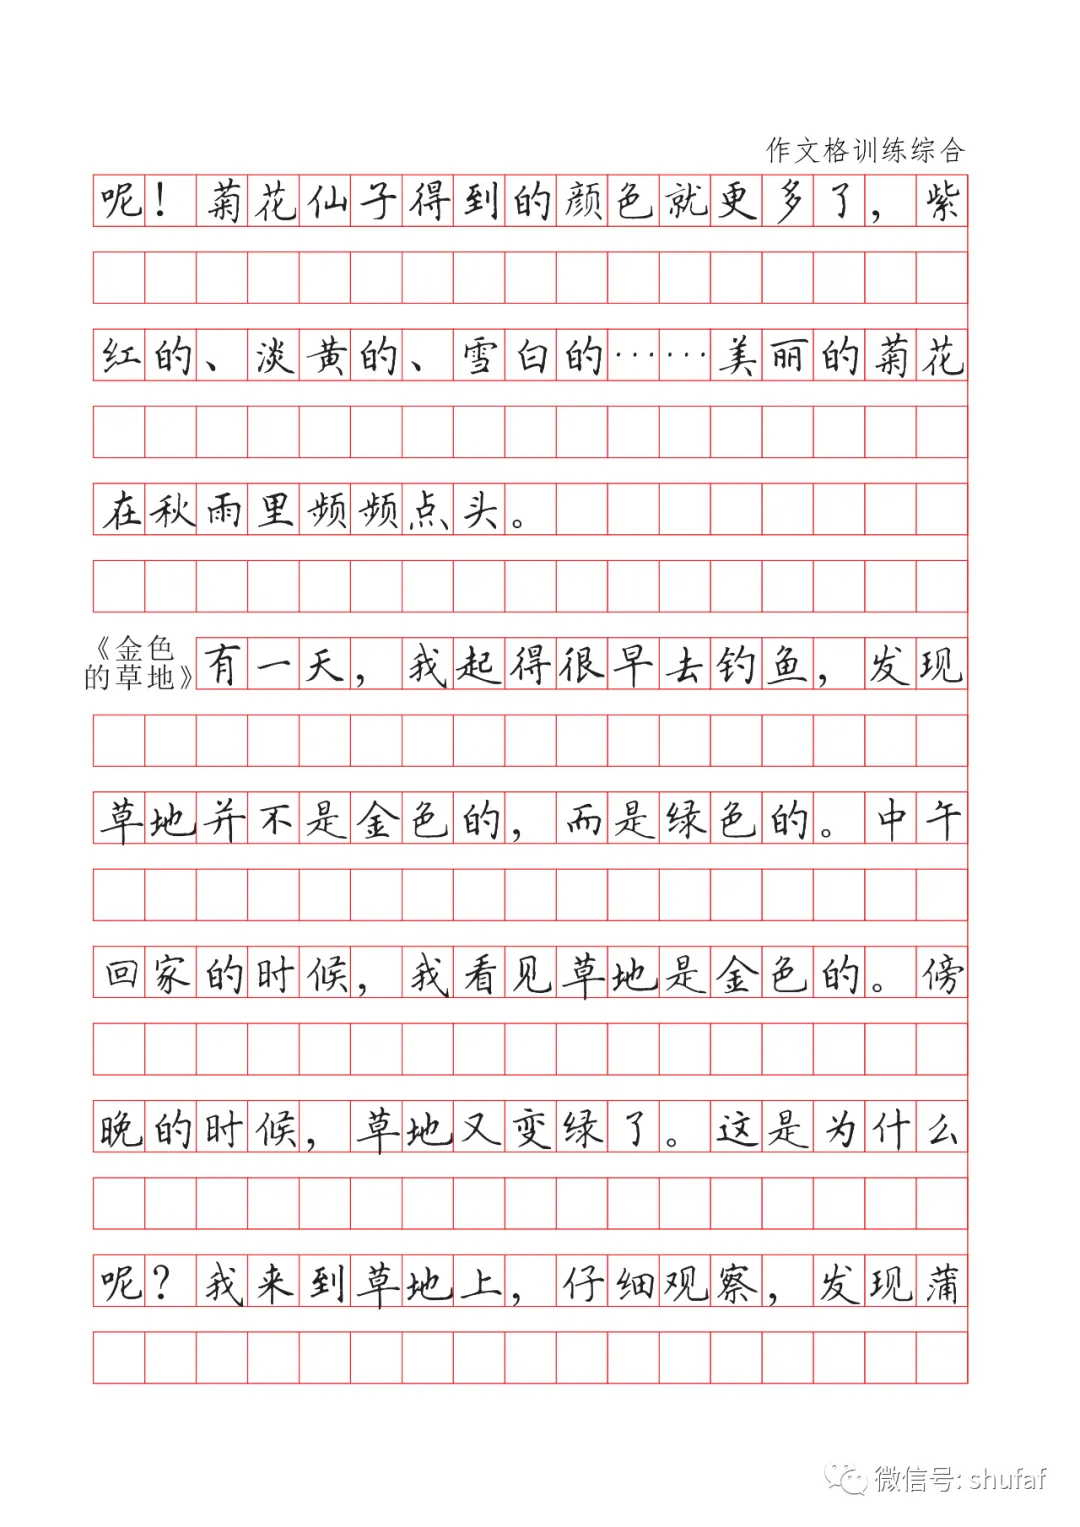 作文格训练综合
呢！菊花仙子得到的颜色就更多了，紫
红的、淡黄的、雪白的……美丽的菊花
在秋雨里频频点头。
《金色
的草地》
有一天，我起得很早去钓鱼，发现
草地并不是金色的，而是绿色的。中午
回家的时候，我看见草地是金色的。傍
晚的时候，草地又变绿了。这是为什么
呢？我来到草地上，仔细观察，发现蒲
微信号: shufaf